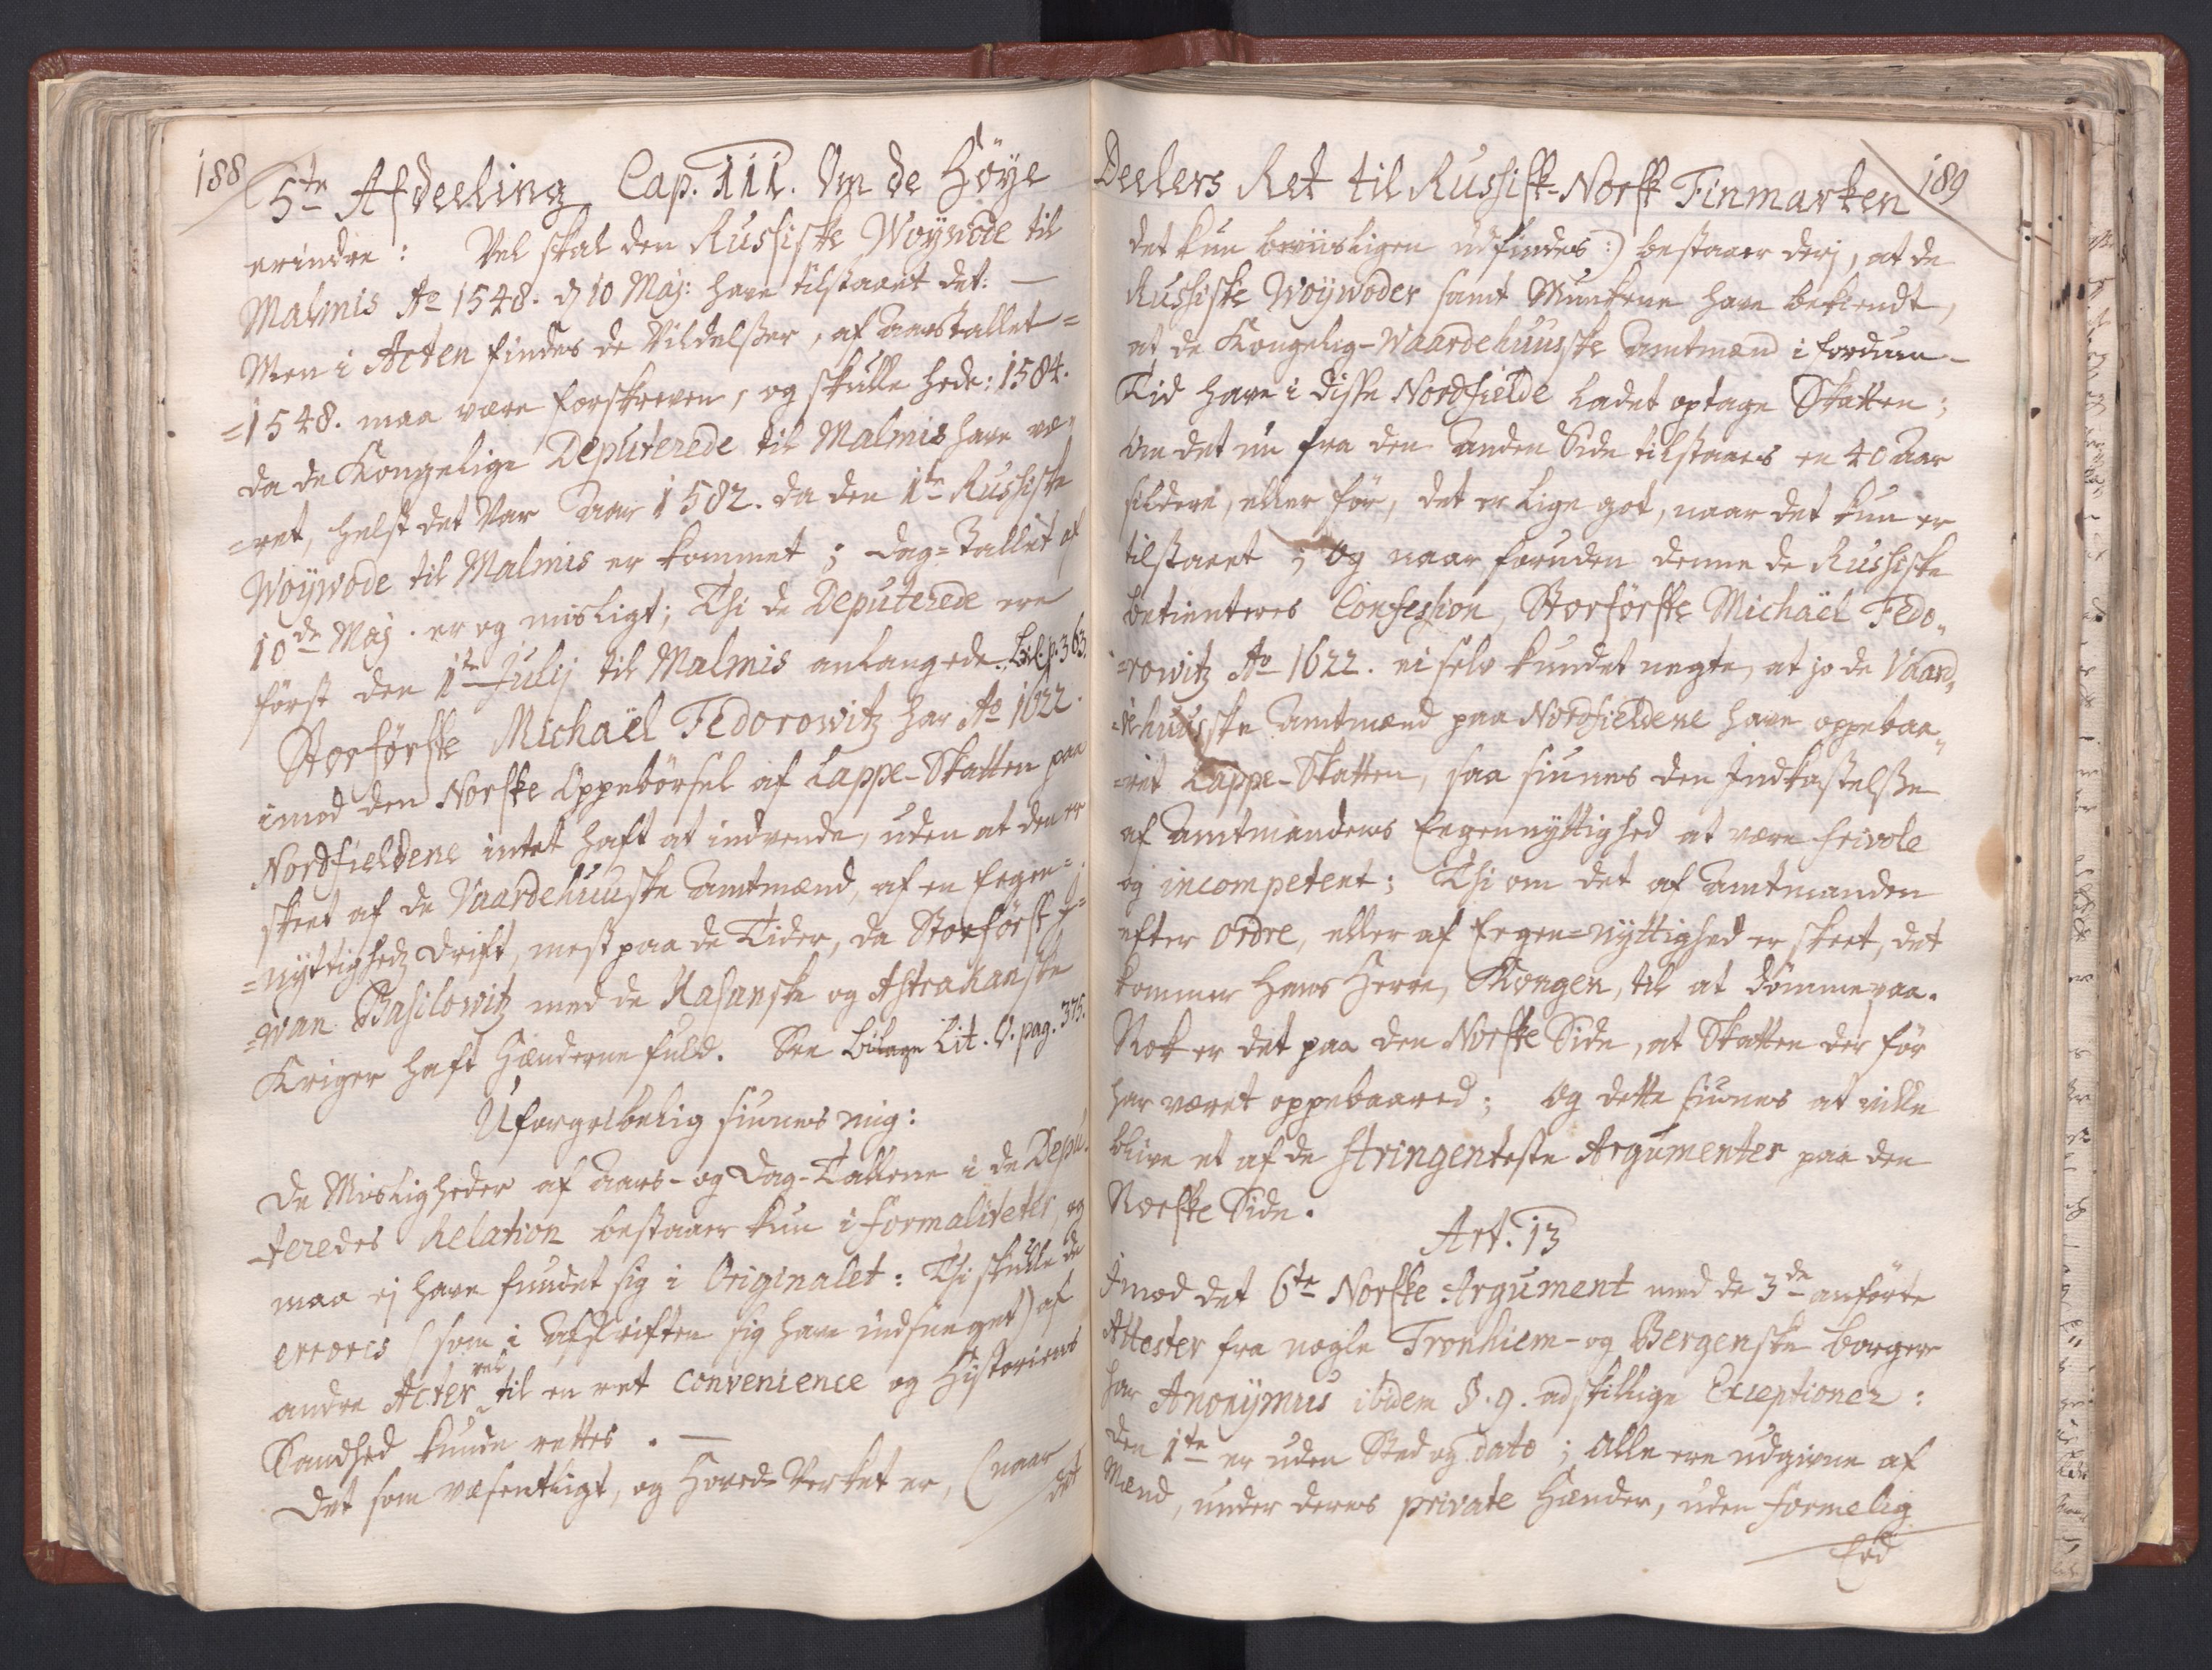 188
5te Afdeeling Cap. III. Om de Höye
erindre: Vel skal den Russiske Woywode til
Malmis Ao 1548. d 10 Maj: have tilstaaet det: —
Men i Acten findes de Vildelsser, af Aarstallet=
=1548. maa være forskreven, og skulle hede: 1584.
da de Kongelige Deputerede til Malmis have væ„
=ret, helst det Var Aar 1582. da den 1te Russiske
Woywode til Malmis er kommet; Dag=tallet af
10de Maj. er og misligt; Thi de Deputerede ere
först den 1te Julij til Malmis anlangede. Bil. p. 363.
Storförste Michaël Fedorowitz har Ao 1622.
imod den Norske Oppebörsel af Lappe-Skatten paa
Nordfieldene intet haft at indvende, uden at den er
skeet af de Vaardehuuske Amtmænd, af en Egen=
=nyttigheds Drift, mest paa de Tider, da Storförst I=
=wan Basilowitz med de Kasanske og Astrakanske
Kriger haft Hænderne fuld. See Bilage Lit. O. pag. 375.
Uforgribelig siunes mig:
De Misligheder af Aars- og Dag-Tallene i de Depu„
=teredes Relation bestaaer kun i formaliteter, og
maa ej have fundet sig i Originalet: Thi skulle de
errores (som i Afskriften sig have indsneget) af
andre Acter vel til en ret convenience og Historiens
Sandhed kunde rettes. —
Det som væsentligt, og Hoved-Verket er, (naar
det
189
Deelers Ret til Russisk-Norsk Finmarken
det kun beviisligen udfindes:) bestaaer derj, at de
Russiske Woywoder samt Munkene have bekiendt,
at de Kongelig-Waardehuusske Amtmænd i fordum-
Tid have i disse Nordfielde Ladet optage Skatten;
Om det nu fra den Anden Side tilstaaes en 40 Aar
sildere, eller för, det er lige got, naar det kun er
tilstaaet; Og naar foruden denne de Russiske
betienteres Confession, Storförste Michaël Fedo„
=rowitz Ao 1622. ei selv kundet negte, at jo de Vaard„
=ehuusske Amtmænd paa Nordfieldene have oppebaa„
=ret Lappe-Skatten, saa siunes den Indkastelsse
af Amtmandens Eegennyttighed at være frivole
og incompetent; Thi om det af Amtmanden
efter Ordre, eller af Eegen=nyttighed er skeet, det
kommer Hans Herre, Kongen, til at dömme paa.
Nok er det paa den Norske Side, at Skatten der för
har været oppebaaret; Og dette siunes at ville
blive et af de stringenteste Argumenter paa den
Norske Side.
Art. 13
Imod det 6te Norske Argument med de 3de anförte
Attester fra nogle Tronhiem- og Bergenske borger
har Anonÿmus ibidem §. 9. adskillige Exceptioner:
Den 1te er uden Sted og dato; Alle ere udgivne af
Mænd, under deres private Hænder, uden formelig
Eed